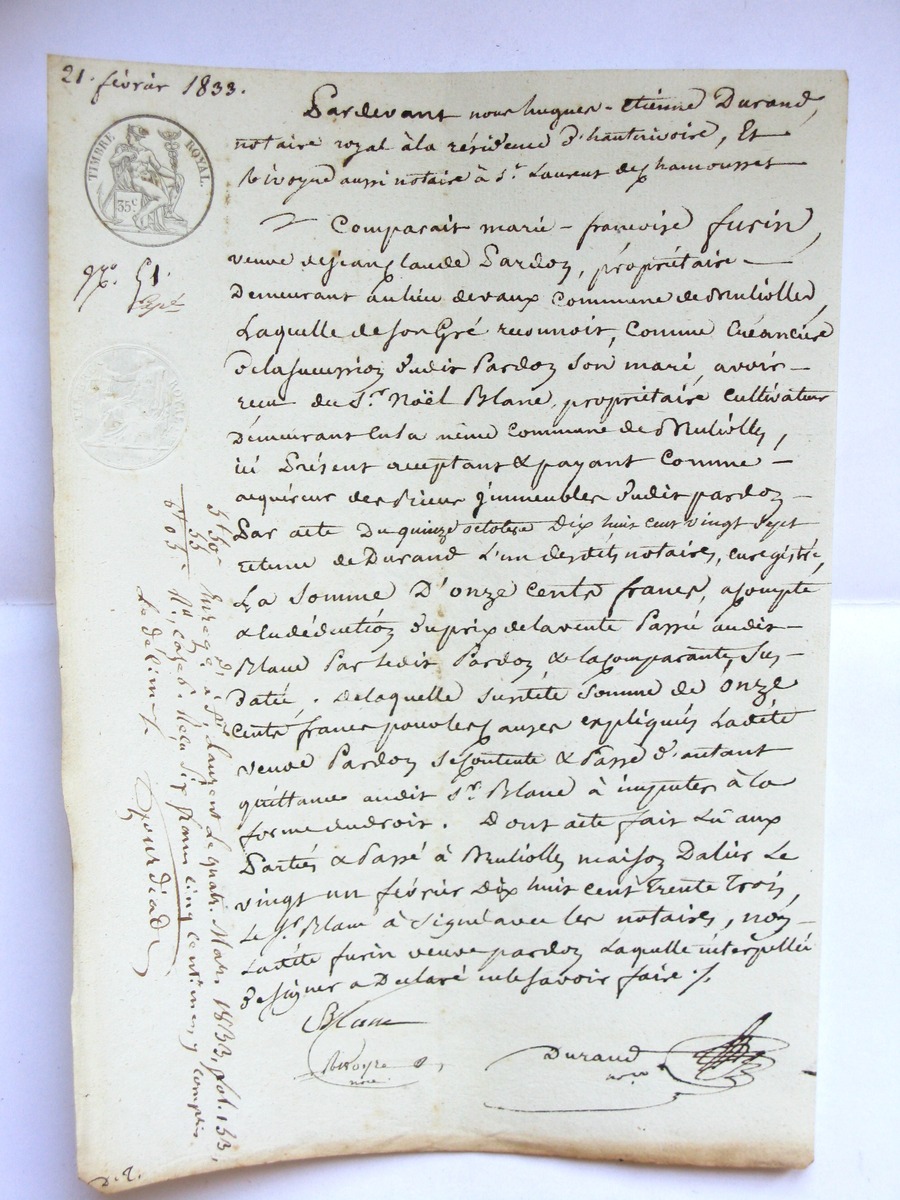 21. février 1833.
TIMBRE ROYAL.
35c
N.º 51.
Pardevant nous hugues-etiénne Durand,
notaire royal à la résidence d'hauterivoire, Et
Rivoyre aussi notaire à St. Laurent de chamousset
Comparait marie-francoise furin,
veuve de jean claude Pardon, propriétaire
Demeurant au lieu de vaux commune de Brulioles,
Laquelle de son Gré reconnoit, comme Créancière
De la succession dudit Pardon son mari, avoir
recu du Sr. Noël Blanc, propriétaire cultivateur
Demeurant en la même commune de Brulioles,
ici Présent acceptant & payant Comme
acquéreur des biens immeubles dudit pardon
Par acte Du quinze octobre Dix huit cent vingt sept
retenu de Durand L'un desdits notaires, enregistré,
La somme D'onze cents francs, acompte
& en déduction du prix de la vente Passée audit
Blanc Par ledit Pardon & la comparante, sus
Datée, De laquelle susdite somme de onze
Cents francs pour les causes expliquées Ladite
veuve Pardon se contente & Passe d'autant
quittance audit Sr. Blanc à imputer à la
forme du droit. Dont acte fait Lu aux
Parties & Passé à Brulioles maison Dalier Le
vingt un février Dix huit cent trente trois,
Le Sr. Blanc à signé avec les notaires, non
Ladite furin veuve pardon Laquelle interpellée
De signer a Déclaré ne le savoir faire ./.
Blanc
Rivoyre
nore
Durand
nore
5f 50c
55
6f 05
Enregé. à St. Laurent Le quatre Mars 1833, fol. 153,
Rd. case 6. Recu six francs cinq centimes y compris
Le décime
Gourdiad
D. 2.